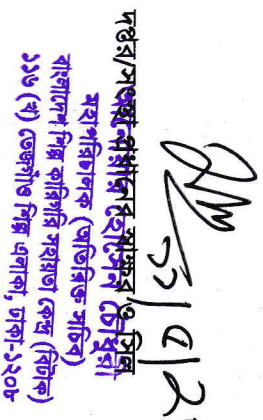 দপ্তর/সংস্থা প্রধানের স্বাক্ষর ও সিল
হোসেন চৌধুরী
মহাপরিচালক (অতিরিক্ত সচিব)
বাংলাদেশ শিল্প কারিগরি সহায়তা কেন্দ্র (বিটাক)
১১৬ (খ) তেজগাঁও শিল্প এলাকা, ঢাকা-১২০৮